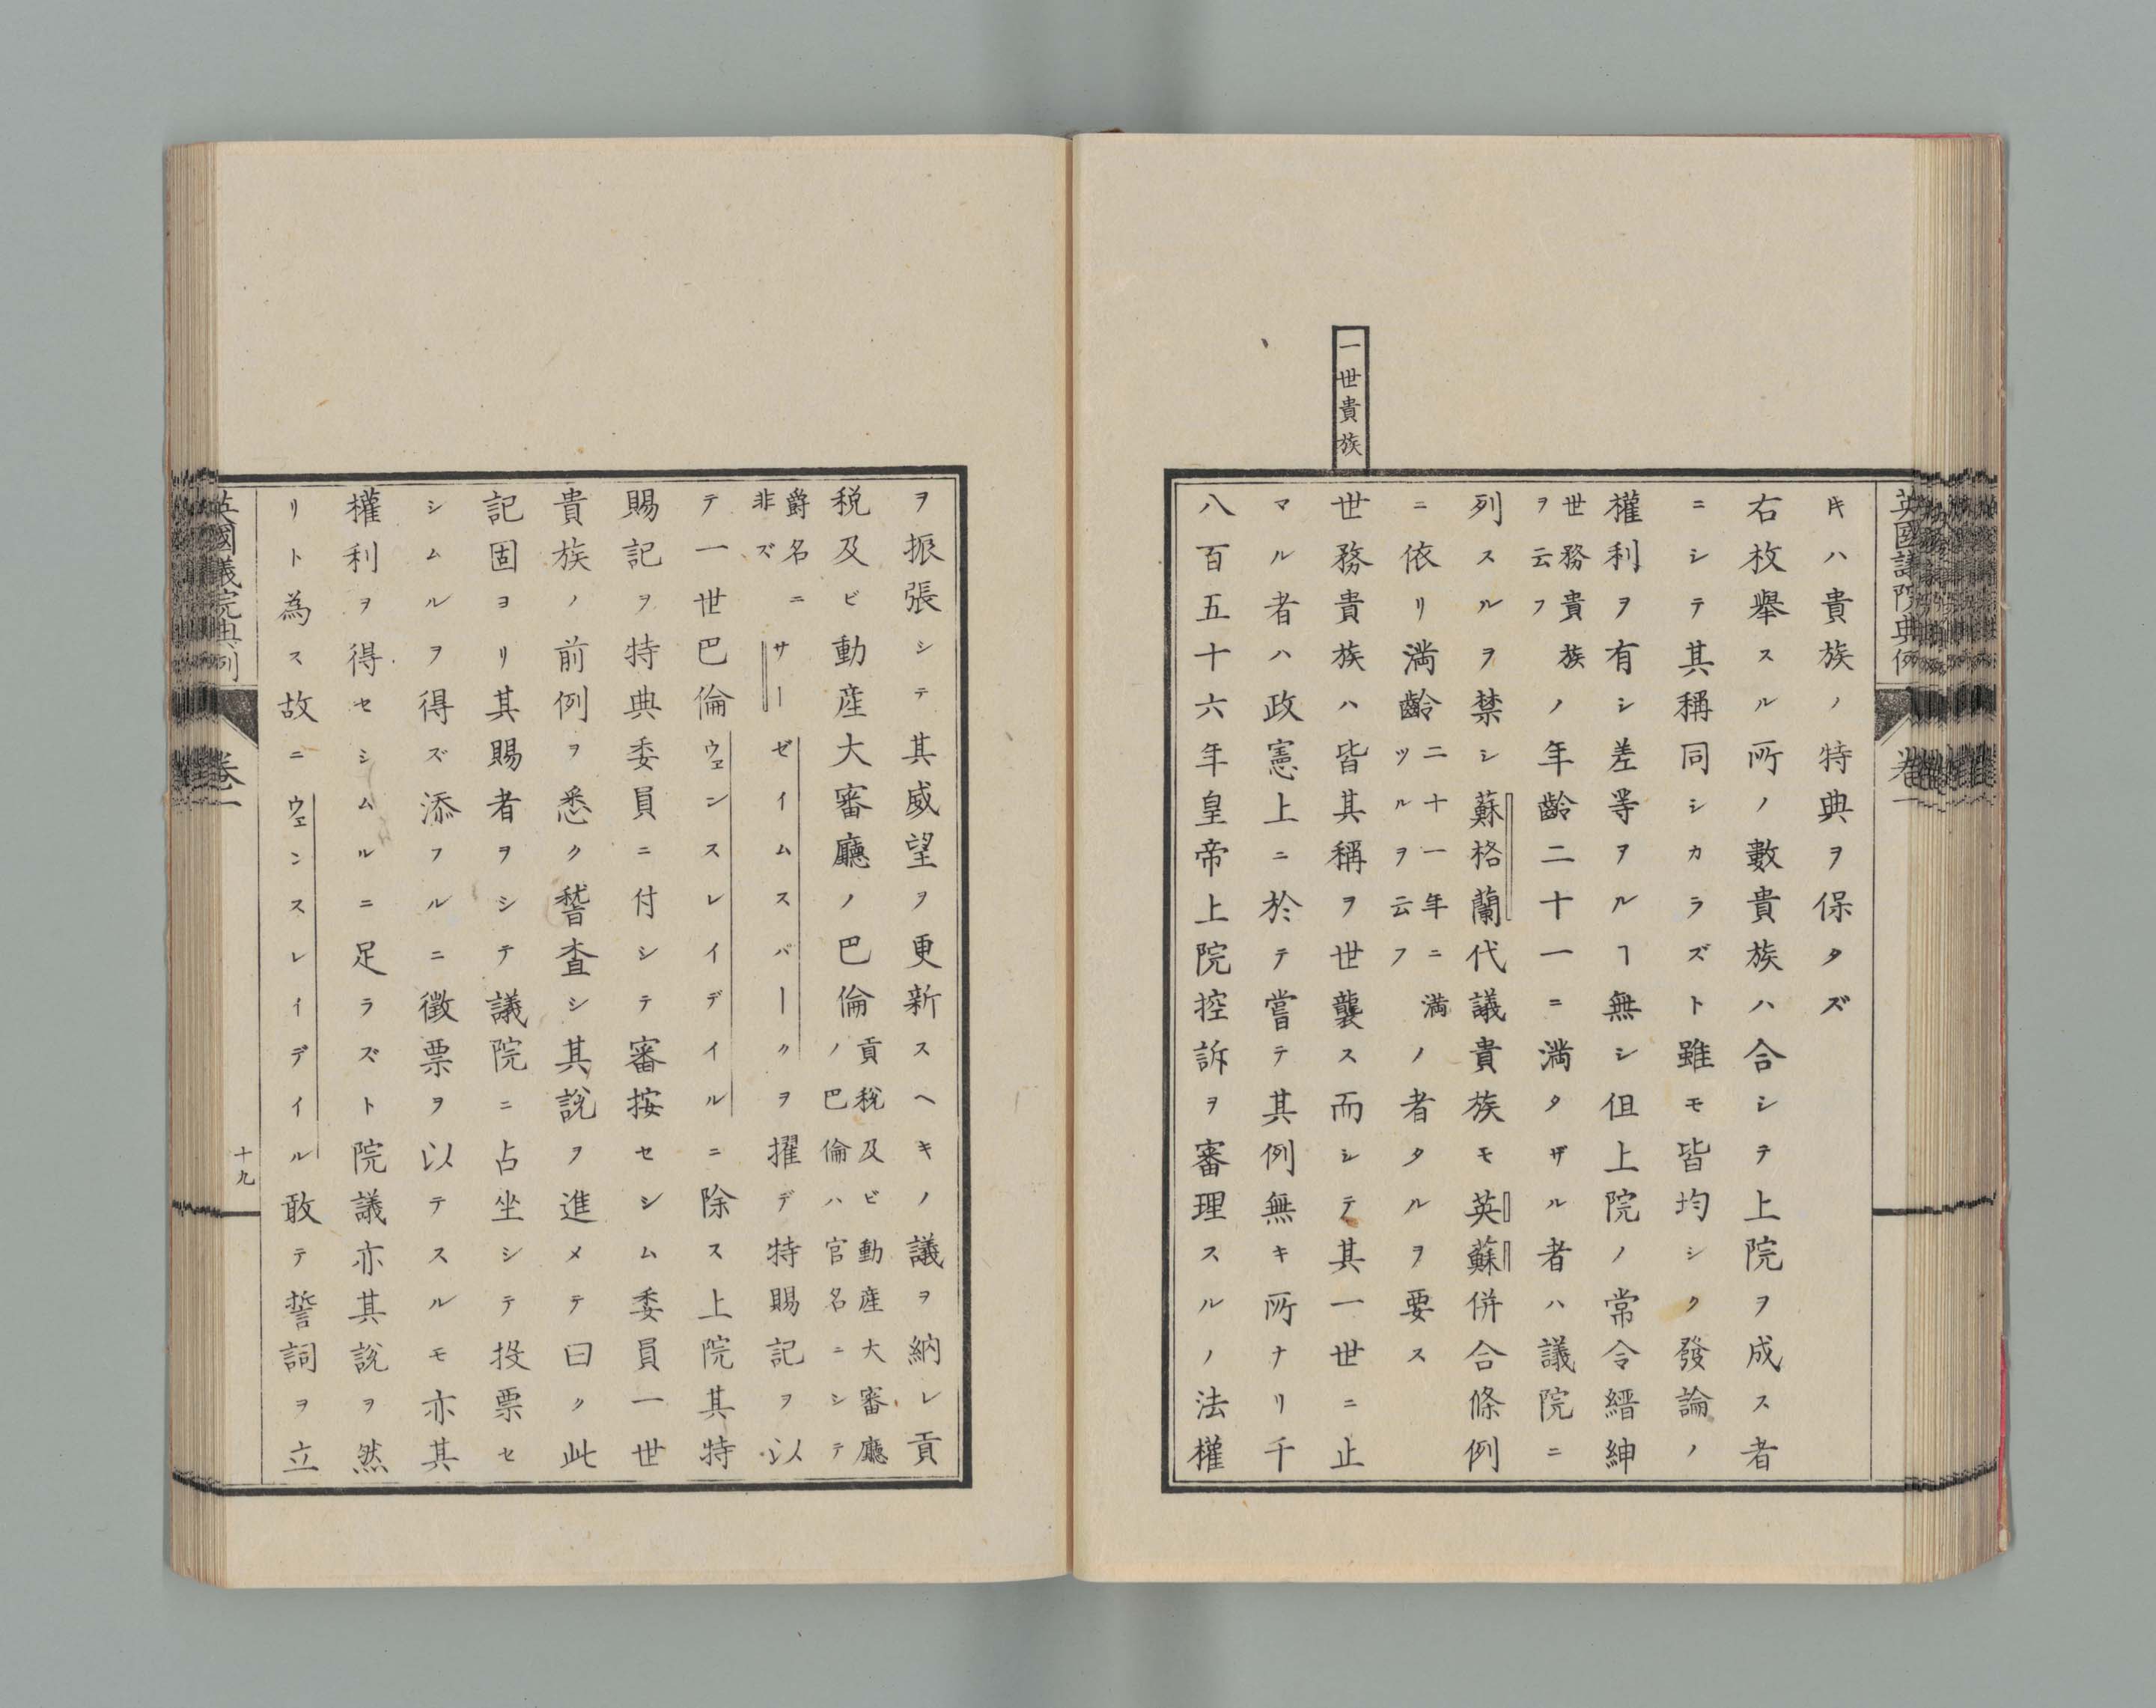 英國議院典例
卷一
𪜈ハ貴族ノ特典ヲ保タズ
右枚舉スル所ノ數貴族ハ合シテ上院ヲ成ス者
ニシテ其稱同シカラズト雖モ皆均シク發論ノ
權利ヲ有シ差等アルヿ無シ但上院ノ常令縉紳
世務貴族
ヲ云フ
ノ年齡二十一ニ滿タザル者ハ議院ニ
列スルヲ禁シ蘇格蘭代議貴族モ英蘇併合條例
ニ依リ滿齡
二十一年ニ滿
ツルヲ云フ
ノ者タルヲ要ス
一世貴族
世務貴族ハ皆其稱ヲ世襲ス而シテ其一世ニ止
マル者ハ政憲上ニ於テ嘗テ其例無キ所ナリ千
八百五十六年皇帝上院控訴ヲ審理スルノ法權
ヲ振張シテ其威望ヲ更新スヘキノ議ヲ納レ貢
税及ビ動產大審廳ノ巴倫
貢税及ビ動產大審廳
ノ巴倫ハ官名ニシテ
爵名ニ
非ズ
サーゼイムスバークヲ擢デ特賜記ヲ以
テ一世巴倫ウェンスレイデイルニ除ス上院其特
賜記ヲ特典委員ニ付シテ審按セシム委員一世
貴族ノ前例ヲ悉ク稽査シ其說ヲ進メテ曰ク此
記固ヨリ其賜者ヲシテ議院ニ占坐シテ投票セ
シムルヲ得ズ添フルニ徵票ヲ以テスルモ亦其
權利ヲ得セシムルニ足ラズト院議亦其說ヲ然
リト為ス故ニウェンスレイデイル敢テ誓詞ヲ立
英國議院典例
卷一
十九